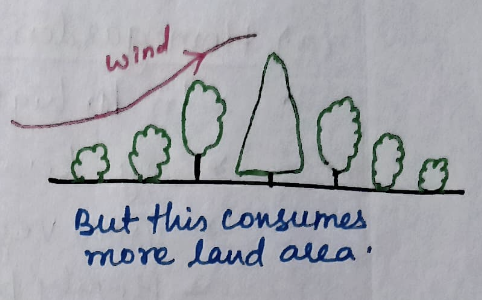 wind
But this consumes
more land area.